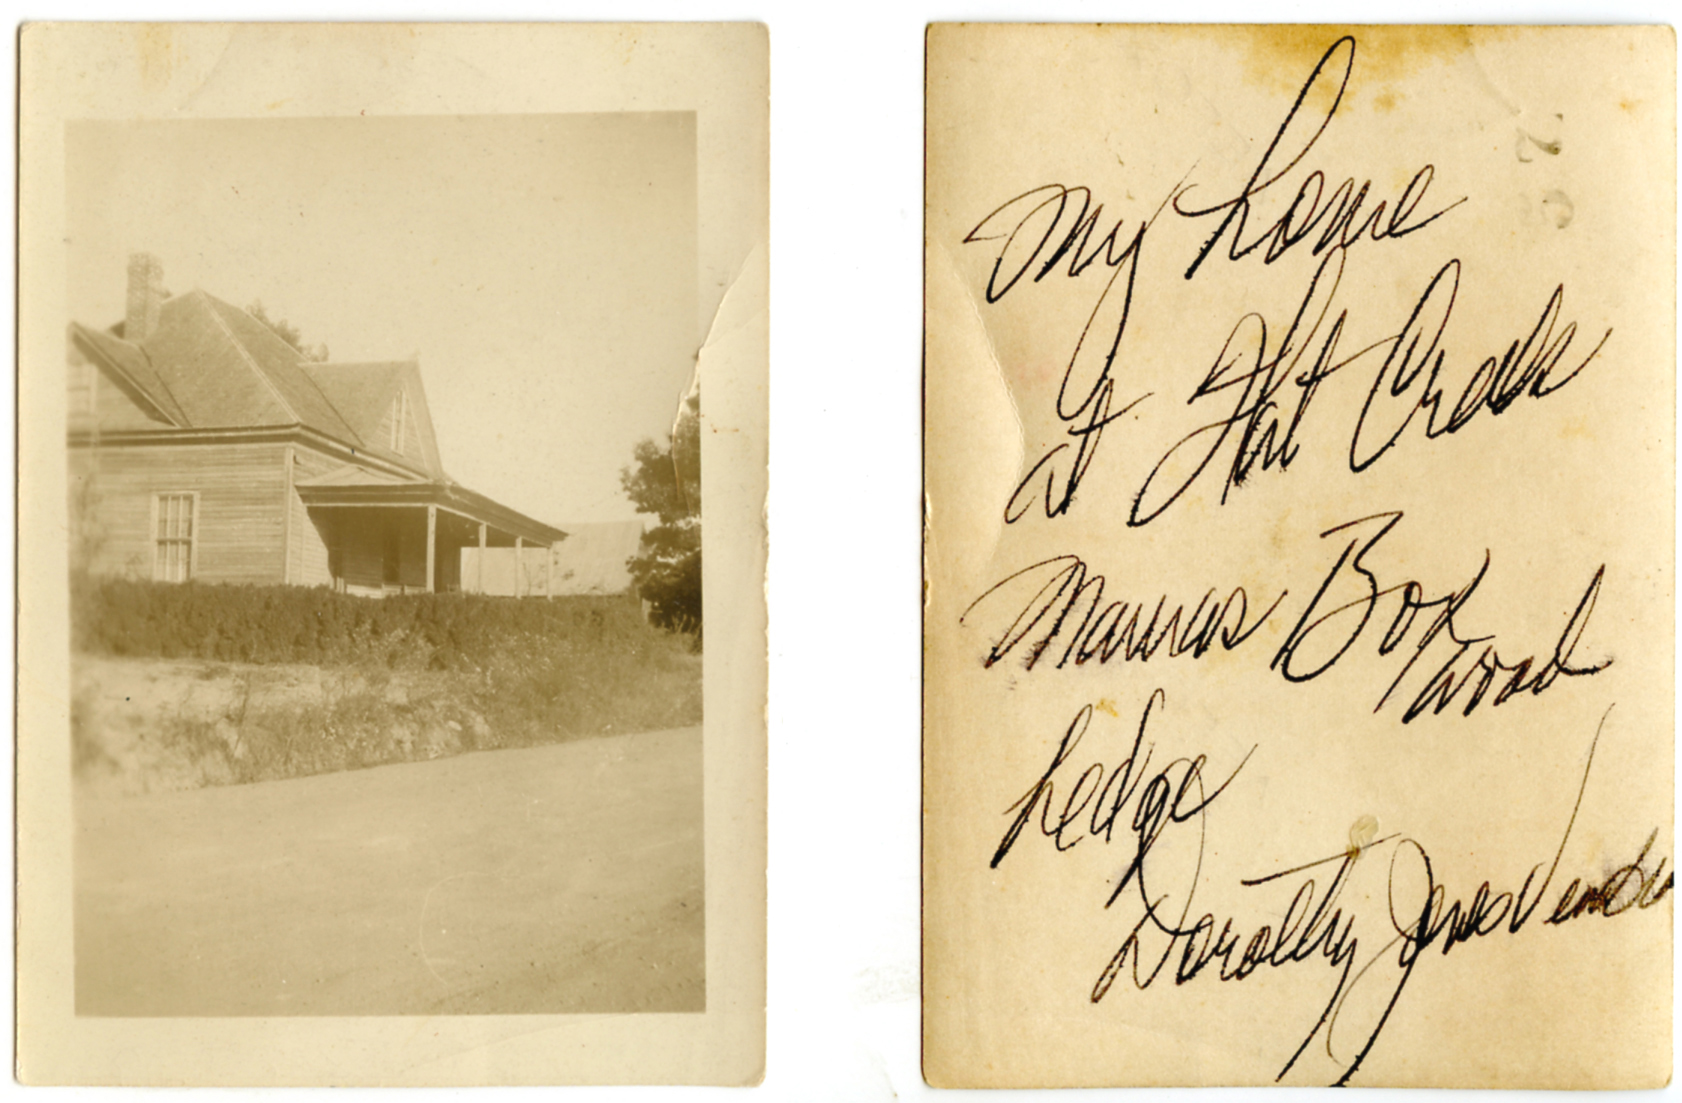 My home
at Flat Creek
Mamas Box
wood
hedge
Dorothy Jones